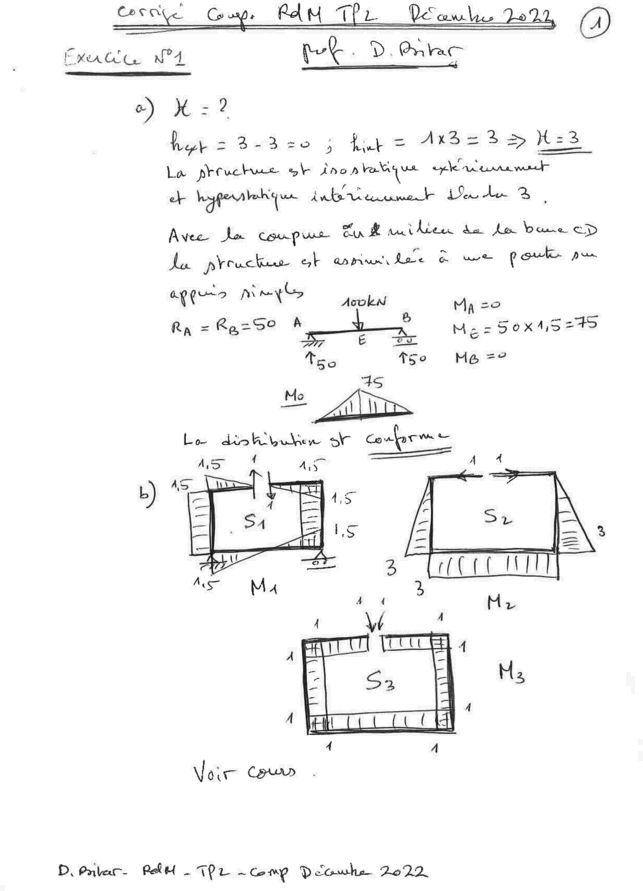 Corrigé Comp. RdM TP2 Décembre 2022
1
Exercice N°1
prof. D. Bitar
a) H = ?
hext = 3 - 3 = 0 ; hint = 1x3 = 3 => H = 3
La structure est isostatique extérieurement
et hyperstatique intérieurement d'ordre 3.
Avec la coupure au milieu de la barre CD
la structure est assimilée à une poutre sur
appuis simples
RA = RB = 50
100kN
A
B
E
↑50
↑50
MA = 0
ME = 50 x 1,5 = 75
MB = 0
M0
75
La distribution est conforme
b)
1,5
1
1,5
1,5
1
1,5
S1
1,5
1,5
M1
1 1
S2
3
3
3
M2
1 1
1
1
1
1
S3
M3
1
1
1
1
Voir cours.
D. Bitar - RdM - TP2 - Comp Décembre 2022